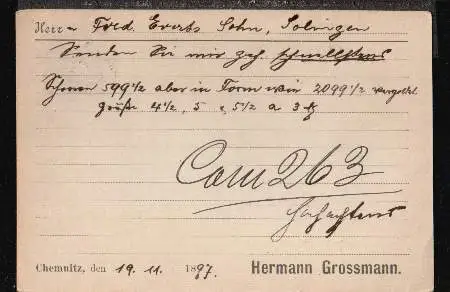 Herrn Fred. Everts Sohn, Solingen
Senden Sie mir gefl. schnellstens
Scheren 599 1/2 aber in Form wie 2099 1/2 vergoldet
Größe 4 1/2, 5, 5 1/2 a 3
Com 263
Hochachtend
Chemnitz, den 19. 11. 1897. Hermann Grossmann.